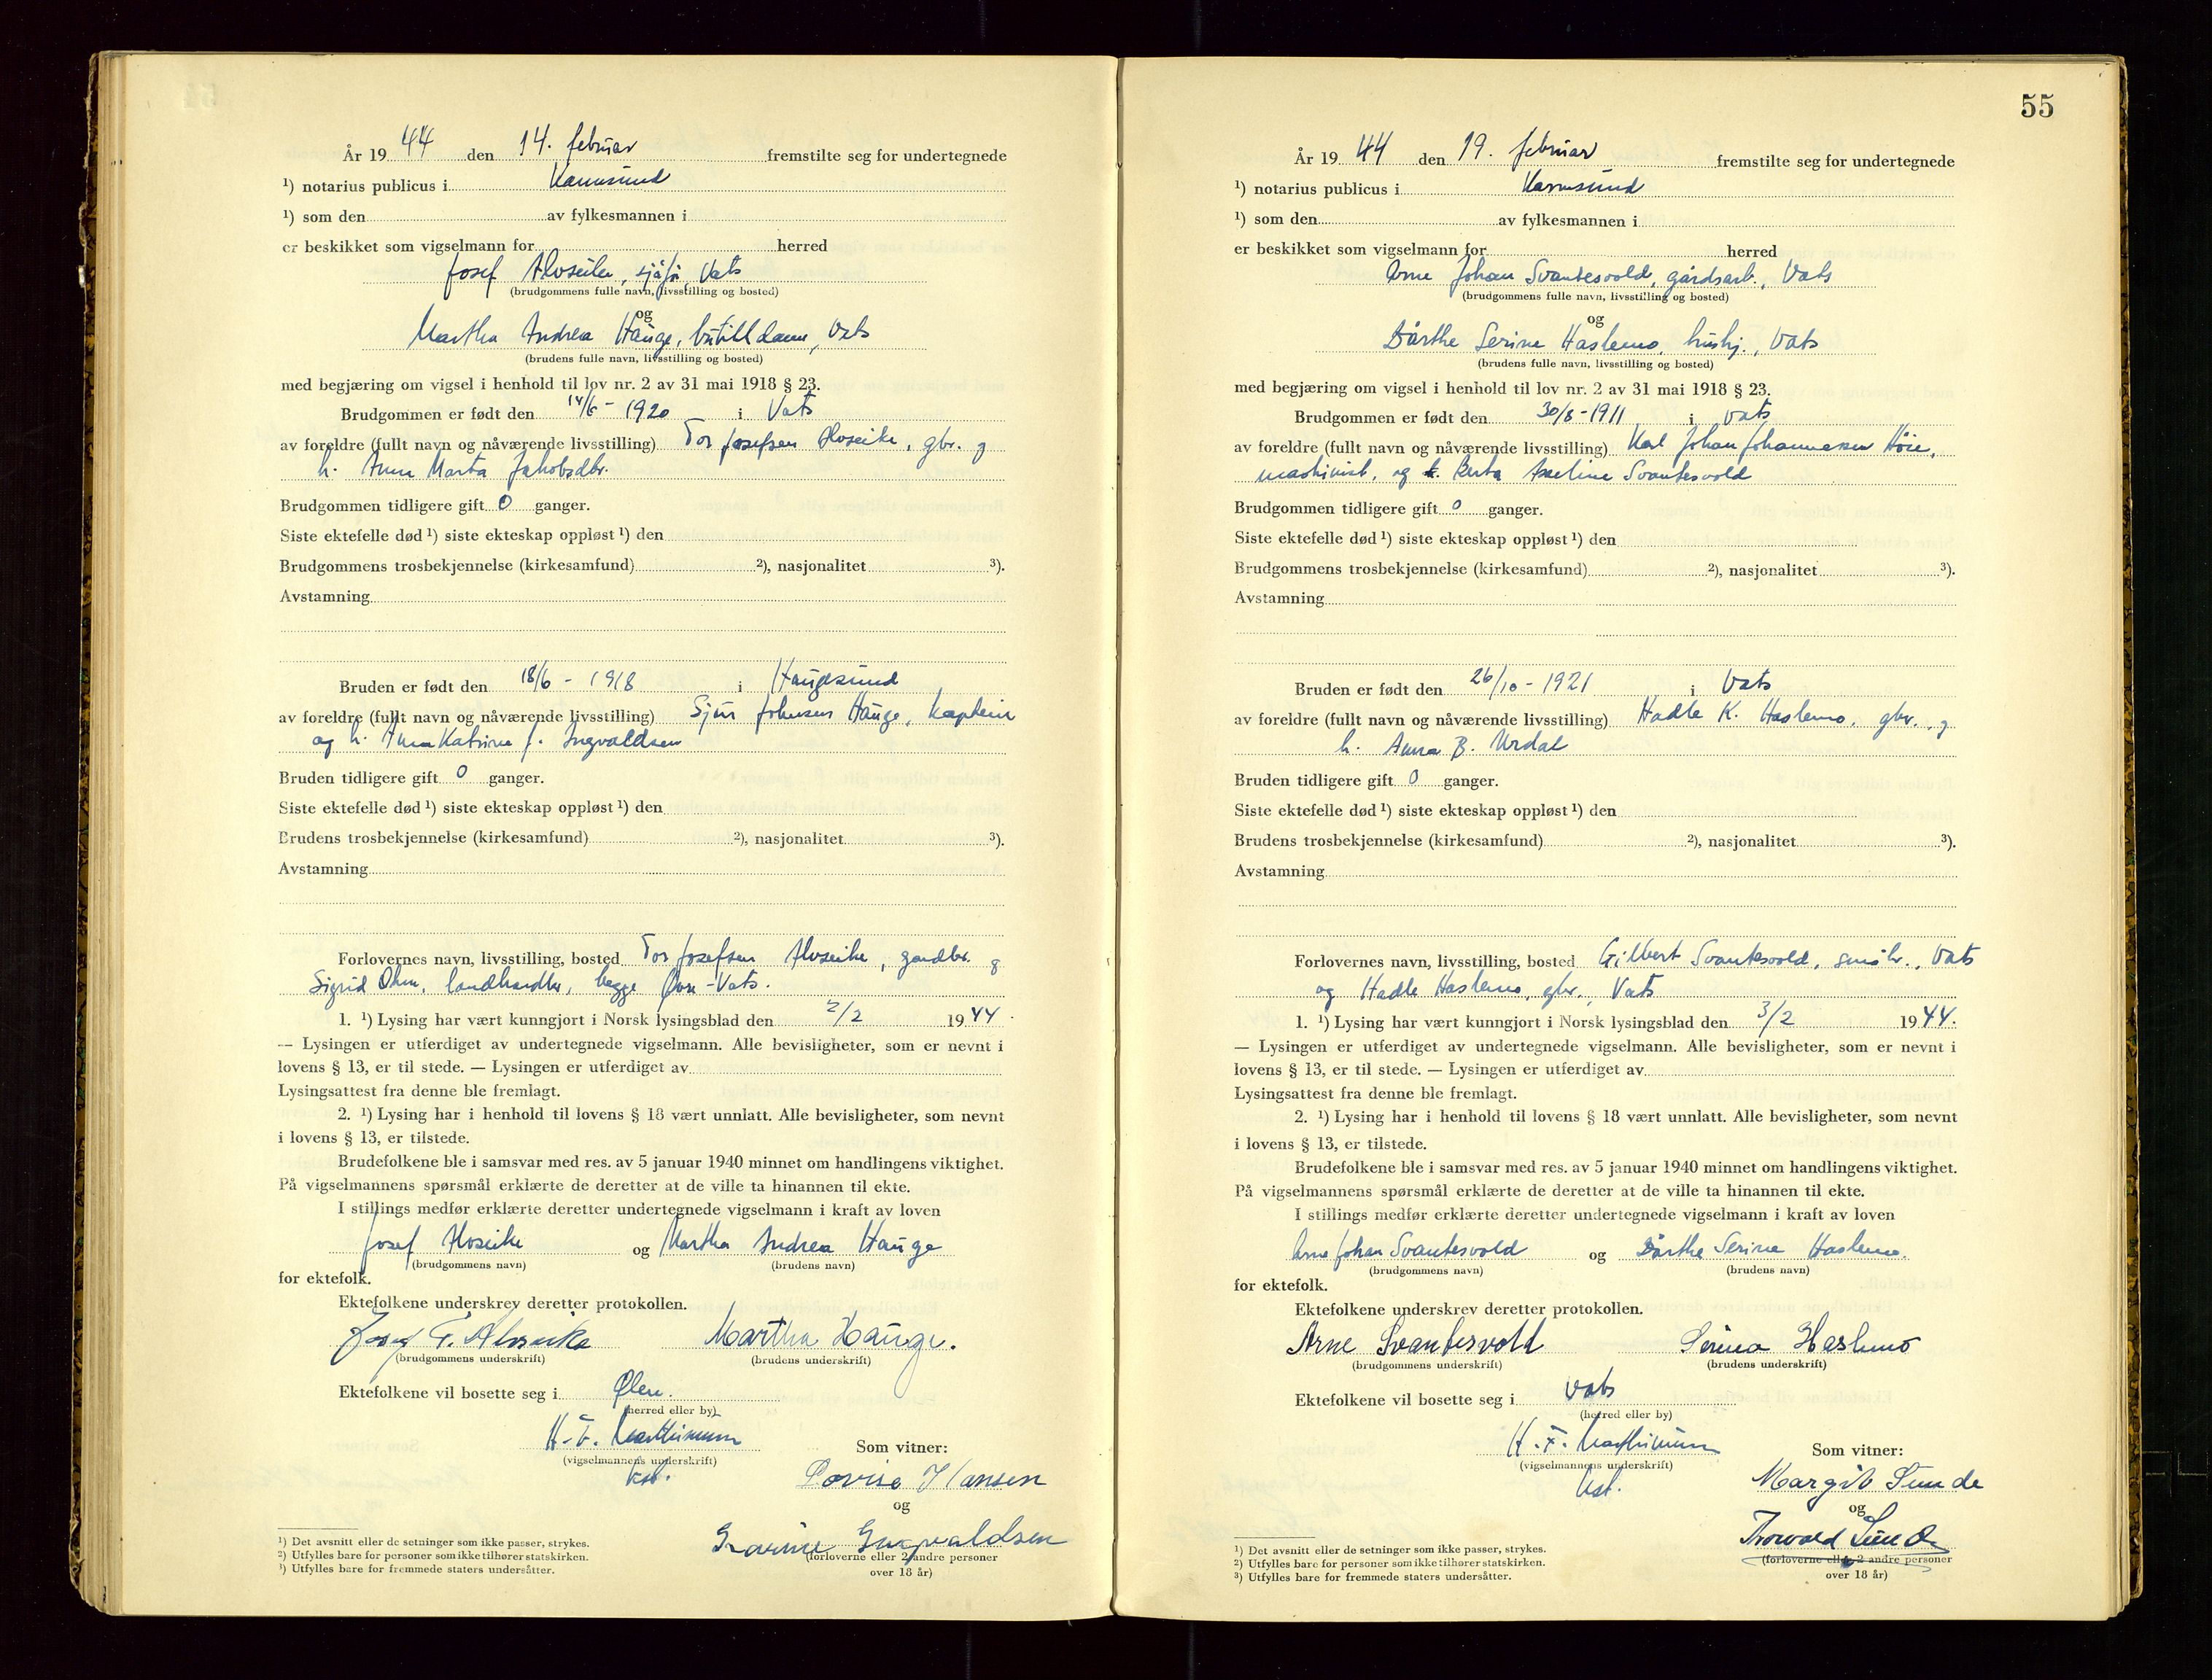 År 19 44 den 14. februar fremstilte seg for undertegnede
¹) notarius publicus i Karmsund
¹) som den av fylkesmannen i
er beskikket som vigselmann for herred
Josef Alvseike, sjåfør, Vats
(brudgommens fulle navn, livsstilling og bosted)
og
Martha Andrea Hauge, butikkdame, Vats
(brudens fulle navn, livsstilling og bosted)
med begjæring om vigsel i henhold til lov nr. 2 av 31 mai 1918 § 23.
Brudgommen er født den 14/6 - 1920 i Vats
av foreldre (fullt navn og nåværende livsstilling) Tor Josefsen Alvseike, gbr. og
h. Anna Marta Jakobsdtr.
Brudgommen tidligere gift 0 ganger.
Siste ektefelle død ¹) siste ekteskap oppløst ¹) den
Brudgommens trosbekjennelse (kirkesamfund) ²), nasjonalitet ³).
Avstamning
Bruden er født den 18/6 - 1918 i Haugesund
av foreldre (fullt navn og nåværende livsstilling) Sjur Johnsen Hauge, kaptein
og h. Anna Katrine f. Ingvaldsen
Bruden tidligere gift 0 ganger.
Siste ektefelle død ¹) siste ekteskap oppløst ¹) den
Brudens trosbekjennelse (kirkesamfund) ²), nasjonalitet ³).
Avstamning
Forlovernes navn, livsstilling, bosted Tor Josefsen Alvseike, gardbr. og
Sigrid landhandler, begge Øvre-Vats.
1. ¹) Lysing har vært kunngjort i Norsk lysingsblad den 2/2 19 44.
— Lysingen er utferdiget av undertegnede vigselmann. Alle bevisligheter, som er nevnt i
lovens § 13, er til stede. — Lysingen er utferdiget av
Lysingsattest fra denne ble fremlagt.
2. ¹) Lysing har i henhold til lovens § 18 vært unnlatt. Alle bevisligheter, som nevnt
i lovens § 13, er tilstede.
Brudefolkene ble i samsvar med res. av 5 januar 1940 minnet om handlingens viktighet.
På vigselmannens spørsmål erklærte de deretter at de ville ta hinannen til ekte.
I stillings medfør erklærte deretter undertegnede vigselmann i kraft av loven
Josef Alvseike og Martha Andrea Hauge
(brudgommens navn) (brudens navn)
for ektefolk.
Ektefolkene underskrev deretter protokollen.
Josef T. Alvseike Martha Hauge.
(brudgommens underskrift) (brudens underskrift)
Ektefolkene vil bosette seg i Ølen.
(herred eller by)
H. F. Marthinussen
(vigselmannens underskrift)
kst.
Som vitner:
Lovise Hansen
og
Ingvaldsen
(forloverne eller 2 andre personer
over 18 år)
¹) Det avsnitt eller de setninger som ikke passer, strykes.
²) Utfylles bare for personer som ikke tilhører statskirken.
³) Utfylles bare for fremmede staters undersåtter.
55
År 19 44 den 19. februar fremstilte seg for undertegnede
¹) notarius publicus i Karmsund
¹) som den av fylkesmannen i
er beskikket som vigselmann for herred
Arne Johan Svantesvold, gårdsarb., Vats
(brudgommens fulle navn, livsstilling og bosted)
og
Dårthe Serine Haslemo, hushj., Vats
(brudens fulle navn, livsstilling og bosted)
med begjæring om vigsel i henhold til lov nr. 2 av 31 mai 1918 § 23.
Brudgommen er født den 30/8 - 1911 i Vats
av foreldre (fullt navn og nåværende livsstilling) Karl Johan Johannesen Høie,
maskinist, og Berta Aseline Svantesvold
Brudgommen tidligere gift 0 ganger.
Siste ektefelle død ¹) siste ekteskap oppløst ¹) den
Brudgommens trosbekjennelse (kirkesamfund) ²), nasjonalitet ³).
Avstamning
Bruden er født den 26/10 - 1921 i Vats
av foreldre (fullt navn og nåværende livsstilling) Hadle K. Haslemo, gbr., og
h. Anna B. Urdal
Bruden tidligere gift 0 ganger.
Siste ektefelle død ¹) siste ekteskap oppløst ¹) den
Brudens trosbekjennelse (kirkesamfund) ²), nasjonalitet ³).
Avstamning
Forlovernes navn, livsstilling, bosted Gilbert Svantesvold, småbr., Vats
og Hadle Haslemo, gbr., Vats
1. ¹) Lysing har vært kunngjort i Norsk lysingsblad den 3/2 19 44.
— Lysingen er utferdiget av undertegnede vigselmann. Alle bevisligheter, som er nevnt i
lovens § 13, er til stede. — Lysingen er utferdiget av
Lysingsattest fra denne ble fremlagt.
2. ¹) Lysing har i henhold til lovens § 18 vært unnlatt. Alle bevisligheter, som nevnt
i lovens § 13, er tilstede.
Brudefolkene ble i samsvar med res. av 5 januar 1940 minnet om handlingens viktighet.
På vigselmannens spørsmål erklærte de deretter at de ville ta hinannen til ekte.
I stillings medfør erklærte deretter undertegnede vigselmann i kraft av loven
Arne Johan Svantesvold og Dårthe Serine Haslemo.
(brudgommens navn) (brudens navn)
for ektefolk.
Ektefolkene underskrev deretter protokollen.
Arne Svantesvold Serina Haslemo
(brudgommens underskrift) (brudens underskrift)
Ektefolkene vil bosette seg i Vats
(herred eller by)
H. F. Marthinussen
(vigselmannens underskrift)
kst.
Som vitner:
Margit Sunde
og
Torvald Sunde
(forloverne eller 2 andre personer
over 18 år)
¹) Det avsnitt eller de setninger som ikke passer, strykes.
²) Utfylles bare for personer som ikke tilhører statskirken.
³) Utfylles bare for fremmede staters undersåtter.